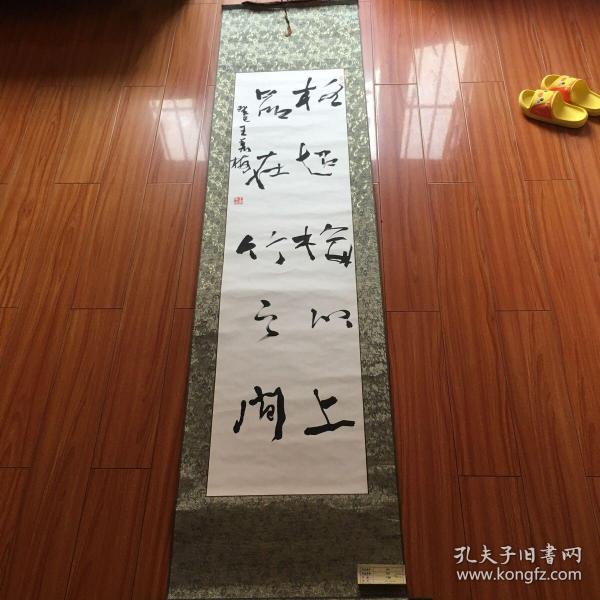 格超梅以上
品在竹之间
癸巳王
孔夫子旧书网
www.kongfz.com